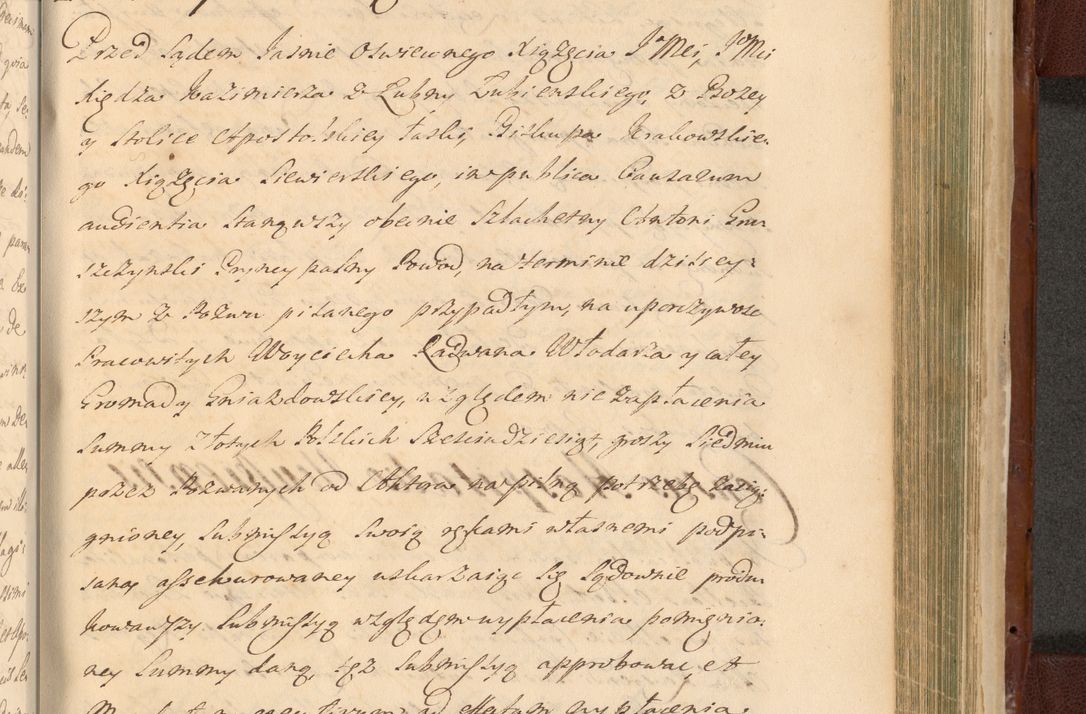 Przed Sądem Jasnie Oswieconego Xiążęcia JMci, JMci
Xiędza Kazimierza z Łubny Łubienskiego, z Bozey
y Stolice Apostolskiey łaski, Biskupa Krakowskie-
go Xiążęcia Siewierskiego, in publica Causarum
audientia Stanąwszy obecnie Szlachetny Antoni Gru
szczynski Pryncypalny Powod, na terminie dzisiey-
szym z Pozwu pisanego przypadłym, na uporczywosc
Pracowitych Woyciecha Ladwana Włodarza y całey
Gromady Gniazdowskiey, względem niezapłacenia
Summy Złotych Polskich Szescidziesiąt, poszy Siedmiu
przez Pozwanych od Aktora na pilną potrzebę zacią-
gnioney, Submissyą Swoią rękami własnemi podpi-
saną assekurowaney uskarzaiąc się Sądownie produ
kowawszy Submissyą względem wypłacenia pomienio-
ney Summy daną, tęż Submissyą approbowac, et
ad effectum wypłacenia